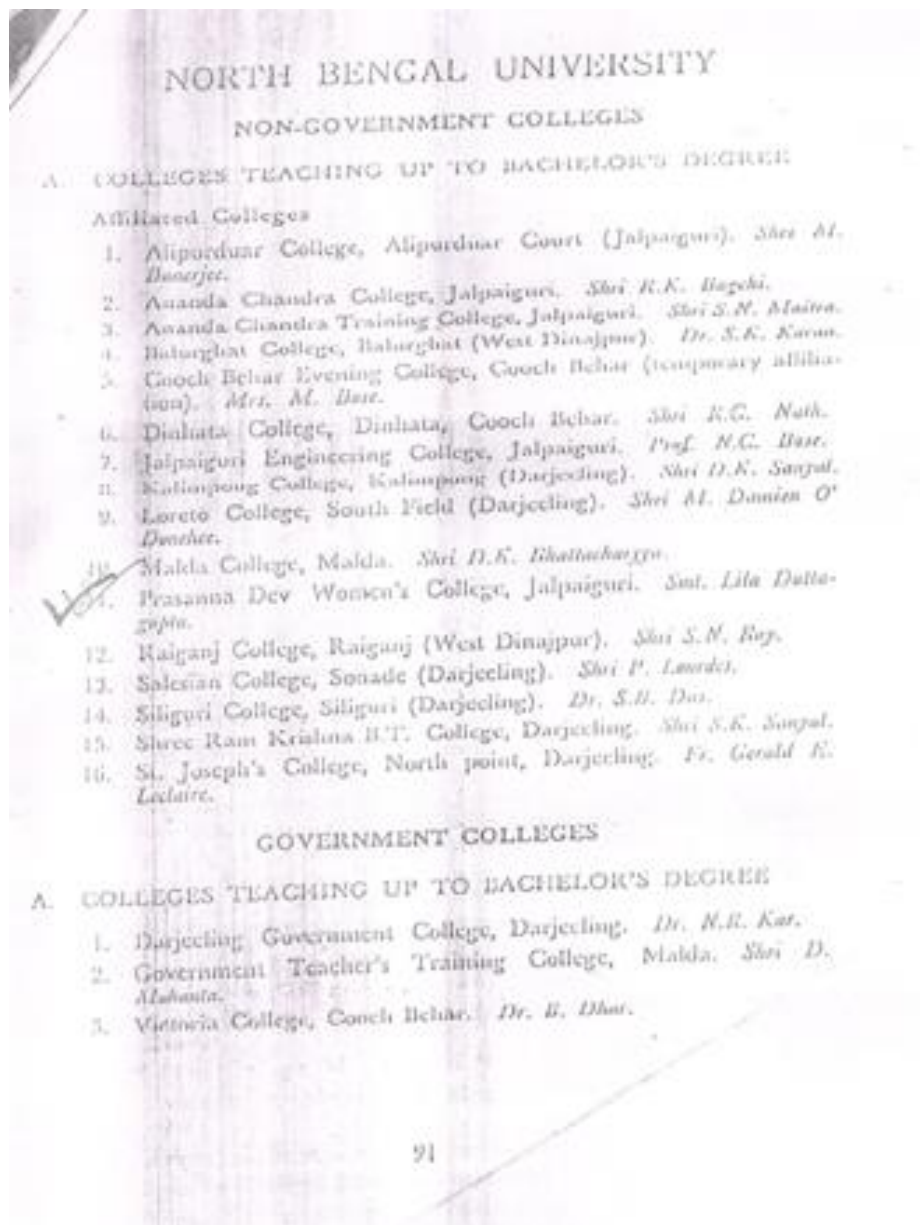 NORTH BENGAL UNIVERSITY
NON-GOVERNMENT COLLEGES
A. COLLEGES TEACHING UP TO BACHELOR'S DEGREE
Affiliated Colleges
1. Alipurduar College, Alipurduar Court (Jalpaiguri). Shri M.
Banerjee.
2. Ananda Chandra College, Jalpaiguri. Shri R.K. Bagchi.
3. Ananda Chandra Training College, Jalpaiguri. Shri S.N. Maitra.
4. Balurghat College, Balurghat (West Dinajpur). Dr. S.K. Karan.
5. Cooch Behar Evening College, Cooch Behar (temporary affilia-
tion). Mrs. M. Bose.
6. Dinhata College, Dinhata, Cooch Behar. Shri K.C. Nath.
7. Jalpaiguri Engineering College, Jalpaiguri. Prof. N.C. Bose.
8. Kalimpong College, Kalimpong (Darjeeling). Shri D.K. Sanyal.
9. Loreto College, South Field (Darjeeling). Shri M. Damien O'
10. Malda College, Malda. Shri D.K. Bhattacharyya.
11. Prasanna Dev Women's College, Jalpaiguri. Smt. Lila Dutta-
gupta.
12. Raiganj College, Raiganj (West Dinajpur). Shri S.N. Roy.
13. Salesian College, Sonade (Darjeeling). Shri P. Lourdes.
14. Siliguri College, Siliguri (Darjeeling). Dr. S.B. Das.
15. Shree Ram Krishna B.T. College, Darjeeling. Shri S.K. Sanyal.
16. St. Joseph's College, North point, Darjeeling. Fr. Gerald E.
Leclaire.
GOVERNMENT COLLEGES
A. COLLEGES TEACHING UP TO BACHELOR'S DEGREE
1. Darjeeling Government College, Darjeeling. Dr. N.R. Kar.
2. Government Teacher's Training College, Malda. Shri D.
Mahanta.
3. Victoria College, Cooch Behar. Dr. B. Dhar.
91